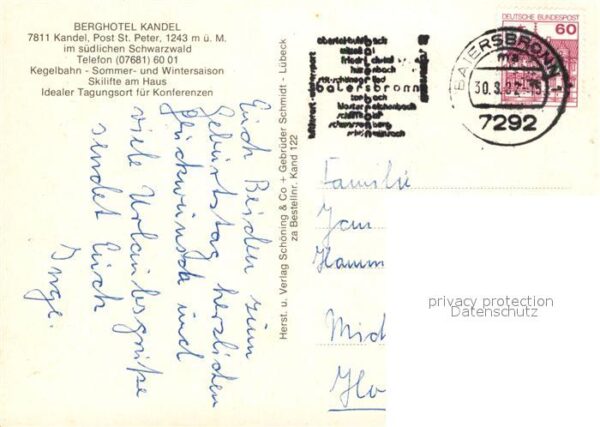 BERGHOTEL KANDEL
7811 Kandel, Post St. Peter, 1243 m ü. M.
im südlichen Schwarzwald
Telefon (07681) 60 01
Kegelbahn - Sommer- und Wintersaison
Skilifte am Haus
Idealer Tagungsort für Konferenzen
Euch Beiden zum
Geburtstag herzlichen
Glückwunsch und
viele Urlaubsgrüße
sendet Euch
Inge.
Herst. u. Verlag Schöning & Co + Gebrüder Schmidt - Lübeck
za Bestellnr. Kand 122
baiersbronn
klosterreichenbach
schönmünzach
DEUTSCHE BUNDESPOST
60
BAIERSBRONN 1
7292
Familie
Jan
Hamm
privacy protection
Datenschutz